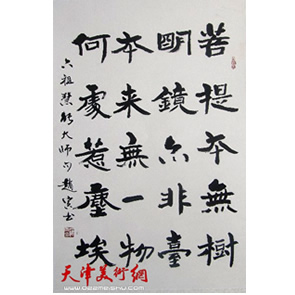 菩提本無樹
明鏡亦非臺
本来無一物
何處惹塵埃
六祖慧能大师句趙寅书
天津美術網